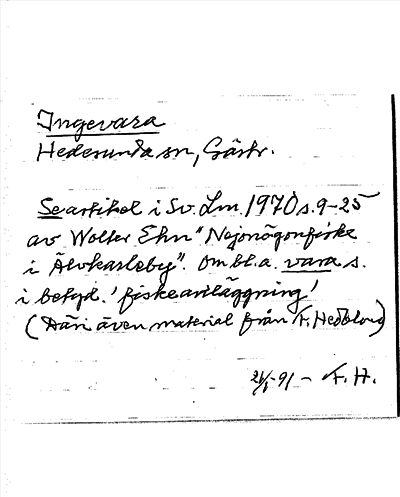 Ingevara
Hedesunda sn, Gästr.
Se artikel i Sv. Lm. 1970 s. 9-25
av Wolter Ehn "Nejonögonfiske
i Älvkarleby". Om bl.a. vara s.
i betyd. 'fiskeanläggning'
(Däri även material från F. Hedblom)
21/1-91 - F.H.